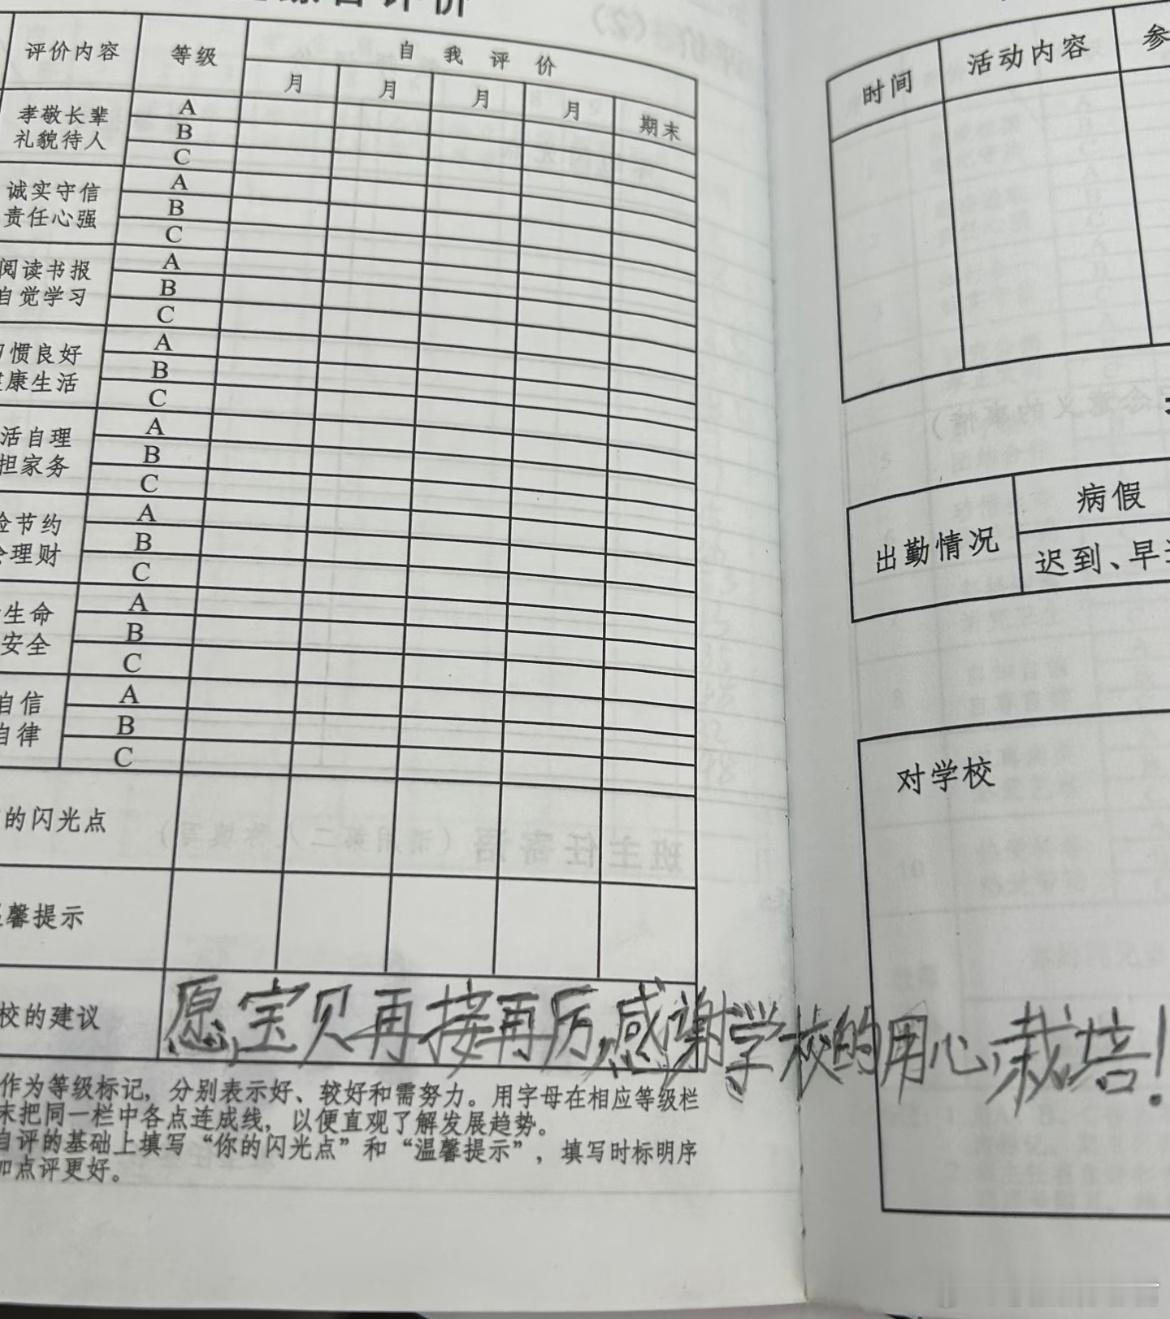 综合评价
评价内容 等级 自我评价
月 月 月 月 期末
孝敬长辈
礼貌待人
A
B
C
诚实守信
责任心强
A
B
C
阅读书报
自觉学习
A
B
C
惯良好
康生活
A
B
C
活自理
担家务
A
B
C
节约
理财
A
B
C
生命
安全
A
B
C
自信
自律
A
B
C
的闪光点
馨提示
校的建议
愿宝贝再接再厉,感谢学校的用心栽培!
作为等级标记，分别表示好、较好和需努力。用字母在相应等级栏
末把同一栏中各点连成线，以便直观了解发展趋势。
自评的基础上填写“你的闪光点”和“温馨提示”，填写时标明序
加点评更好。
时间 活动内容 参
出勤情况 病假
迟到、早
对学校
班主任寄语（请用第二人称填写）